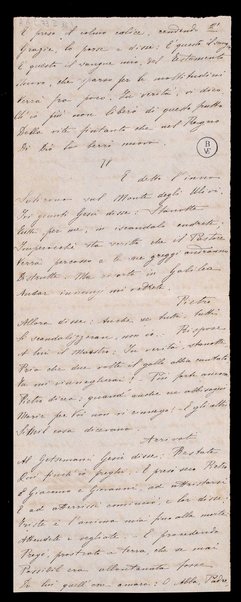 E prese il calice, rendendo
Grazie, lo porse e disse: È questo il sangue,
È questo il sangue mio, del Testamento
Nuovo, che sparso per la moltitudine
Verrà fra poco. In verità, vi dico
Ch'io più non liberò di questo frutto
Della vite fintanto che nel Regno
Di Dio lo berrò nuovo.
B
VE
E detto l'inno
Salirono sul Monte degli Ulivi.
In quanti Gesù disse: Stanotte
per me, in iscandalo andrete,
Imperocchè sta scritto che il Pastore
Verrà percosso e le sue greggi andranno
Distrutte. Ma risorto in Galilea
Andar innanzi mi vedrete.
Pietro
Allora disse: Anche se tutti, tutti
Si scandalizzeran, non io. Rispose
A lui il Maestro: In verità, stanotte
Pria che due volte il gallo abbia cantato
Tu mi rinnegherai! Più forte ancora
Pietro dicea: quand'anche
Morir per Voi non vi rinnego! E gli altri
Simil cosa dicevano.
Arrivati
Al Getsemani Gesù disse: Restate
Qui finch'io preghi. E presi seco Pietro
E Giacomo e Giovanni, ad attristarsi
E ad atterrirsi cominciò, e lor disse:
Triste è l'anima mia fino alla morte.
Attendete e vegliate. E procedendo
Pregò, prostrato a terra, che se mai
Possibil era allontanata fosse
Da lui quell'ora amara: O Abba, Padre,